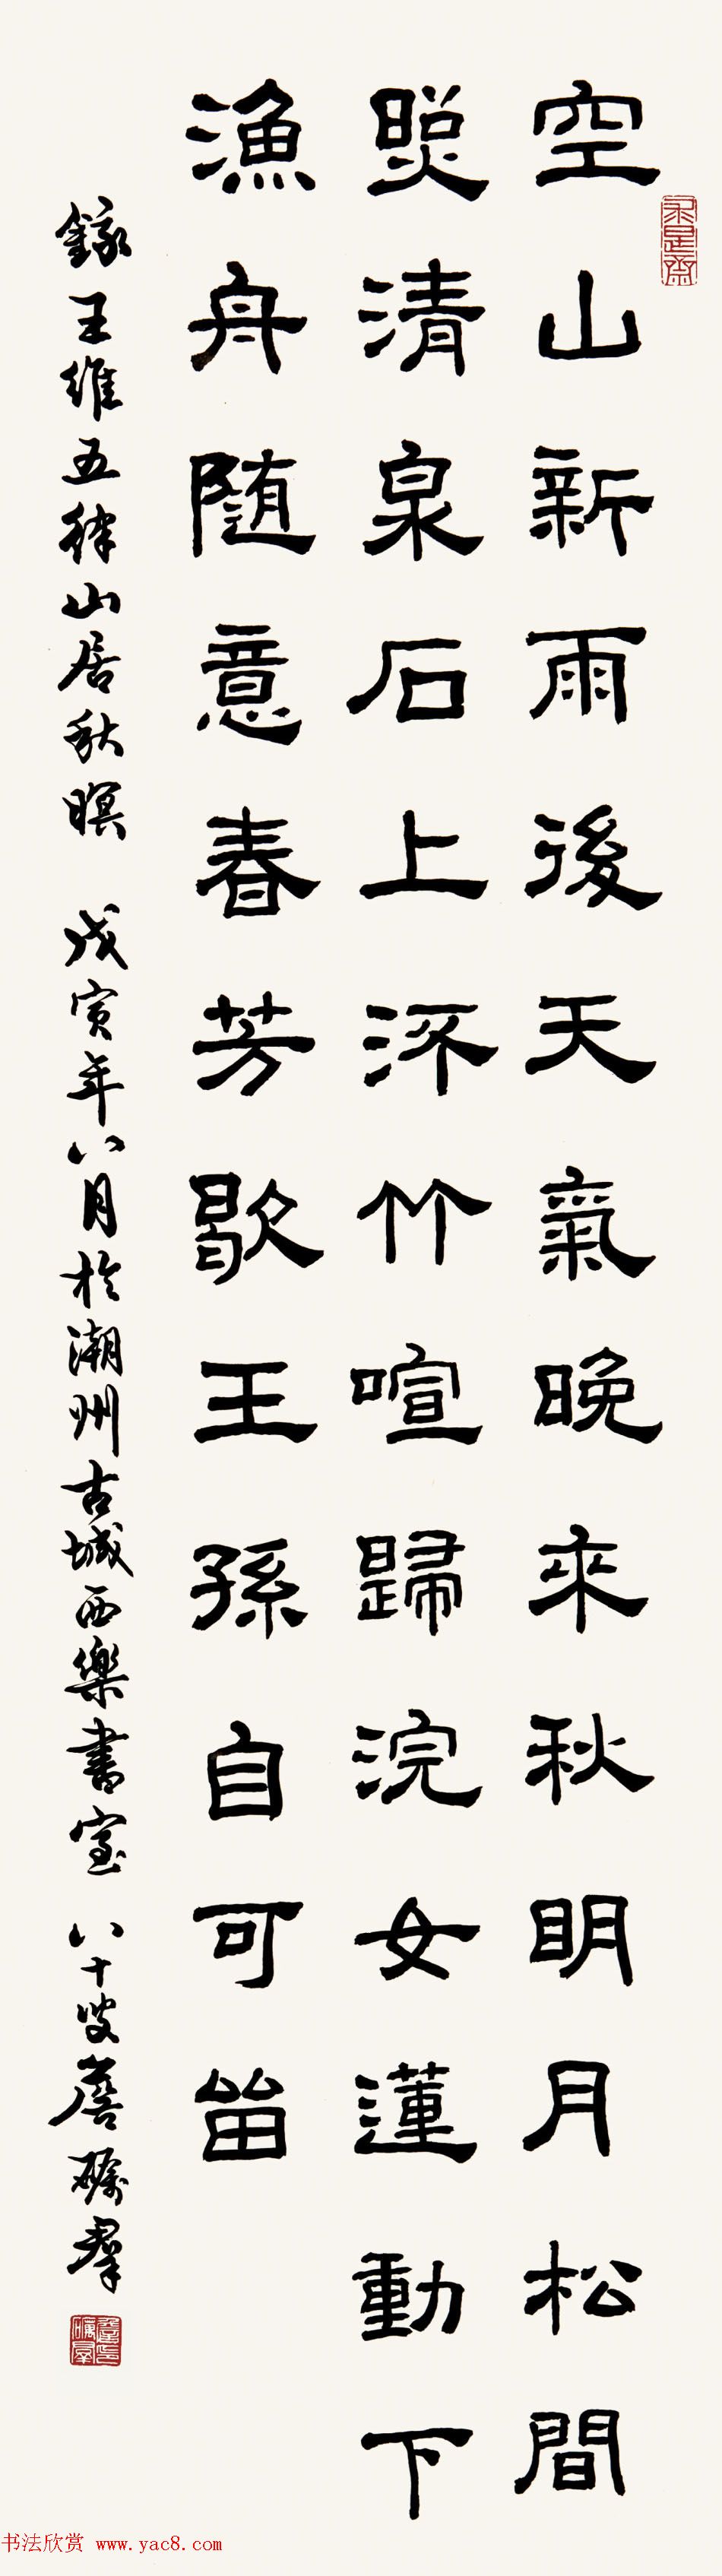 空山新雨後天氣晚來秋明月松間
照清泉石上流竹喧歸浣女蓮動下
漁舟随意春芳歇王孫自可畱
錄王維五律山居秋暝 戊寅年八月於潮州古城西樂書室 八十叟詹礪群
书法欣赏 www.yac8.com